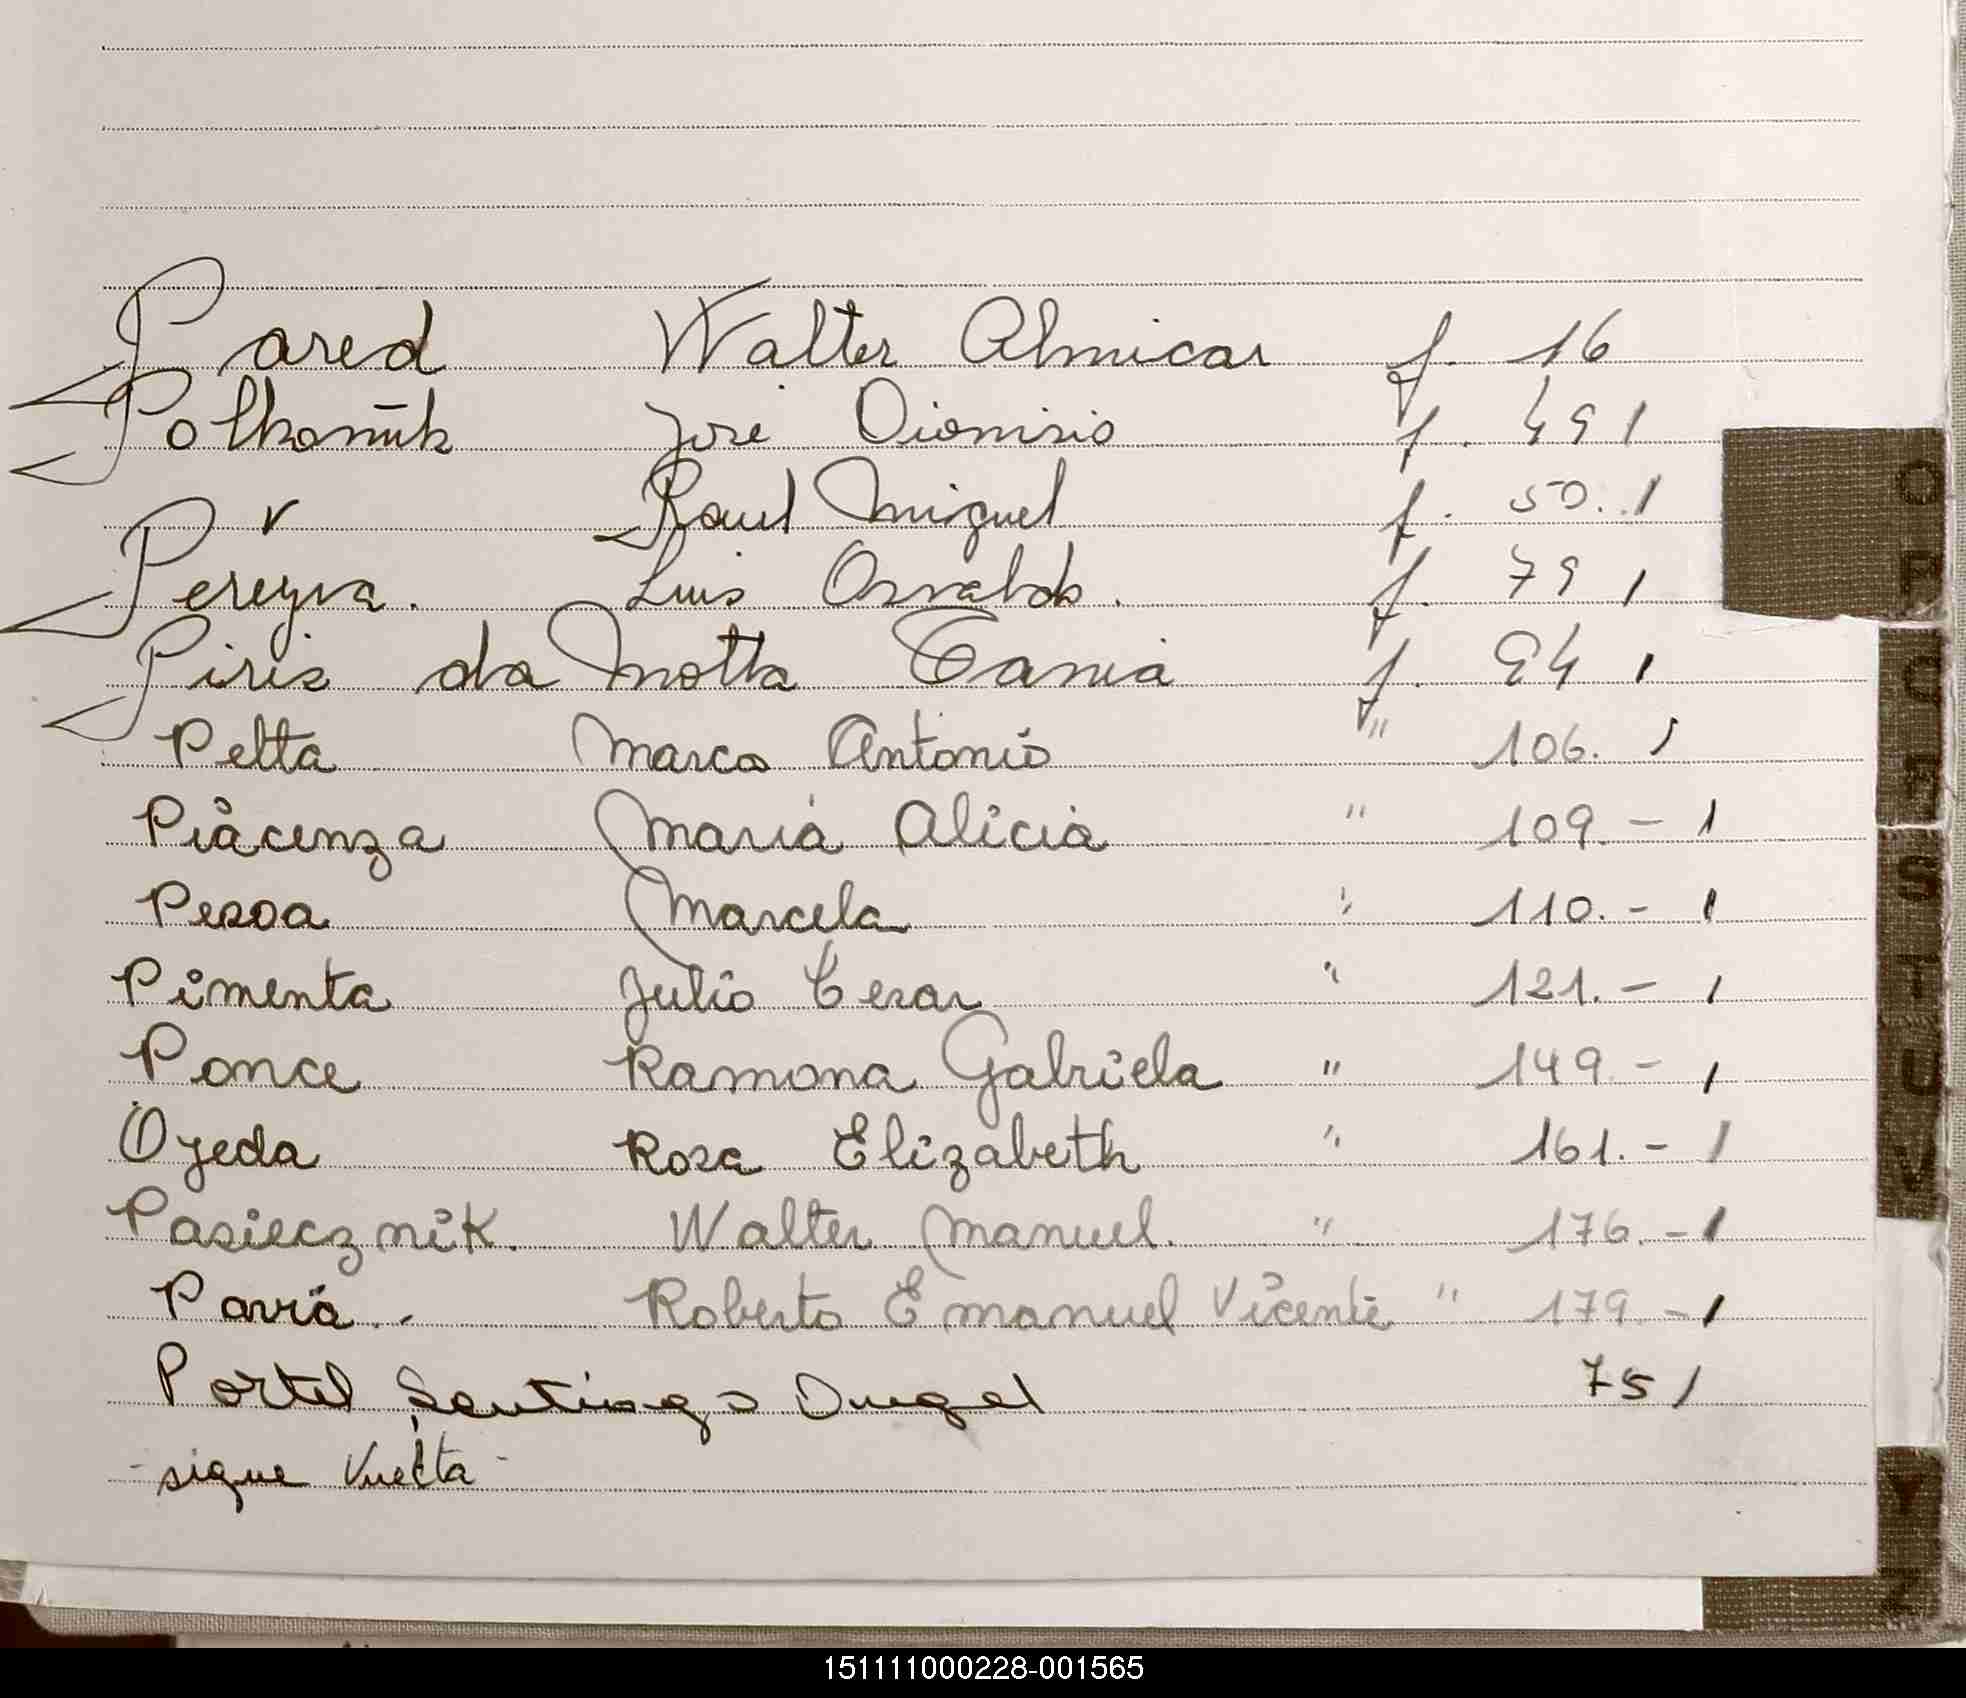 Pared Walter Almicar f. 16
Polkoniuk José Dionisio f. 49 /
v Raul Miguel f. 50. /
Pereyra. Luis Osvaldo. f. 79 /
Piris da Motta Tania f. 94 /
Petta Marco Antonio " 106. /
Piacenza Maria Alicia " 109.- /
Pesoa Marcela " 110.- /
Pimenta Julio Cesar " 121.- /
Ponce Ramona Gabriela " 149.- /
Ojeda Rosa Elizabeth " 161.- /
Pasiecznik. Walter Manuel. " 176.- /
Pavia.- Roberto Emanuel Vicente " 179.- /
Portel Santiago Angel 75 /
- sigue vuelta -
O
P
Q
R
S
T
U
V
Y
Z
151111000228-001565